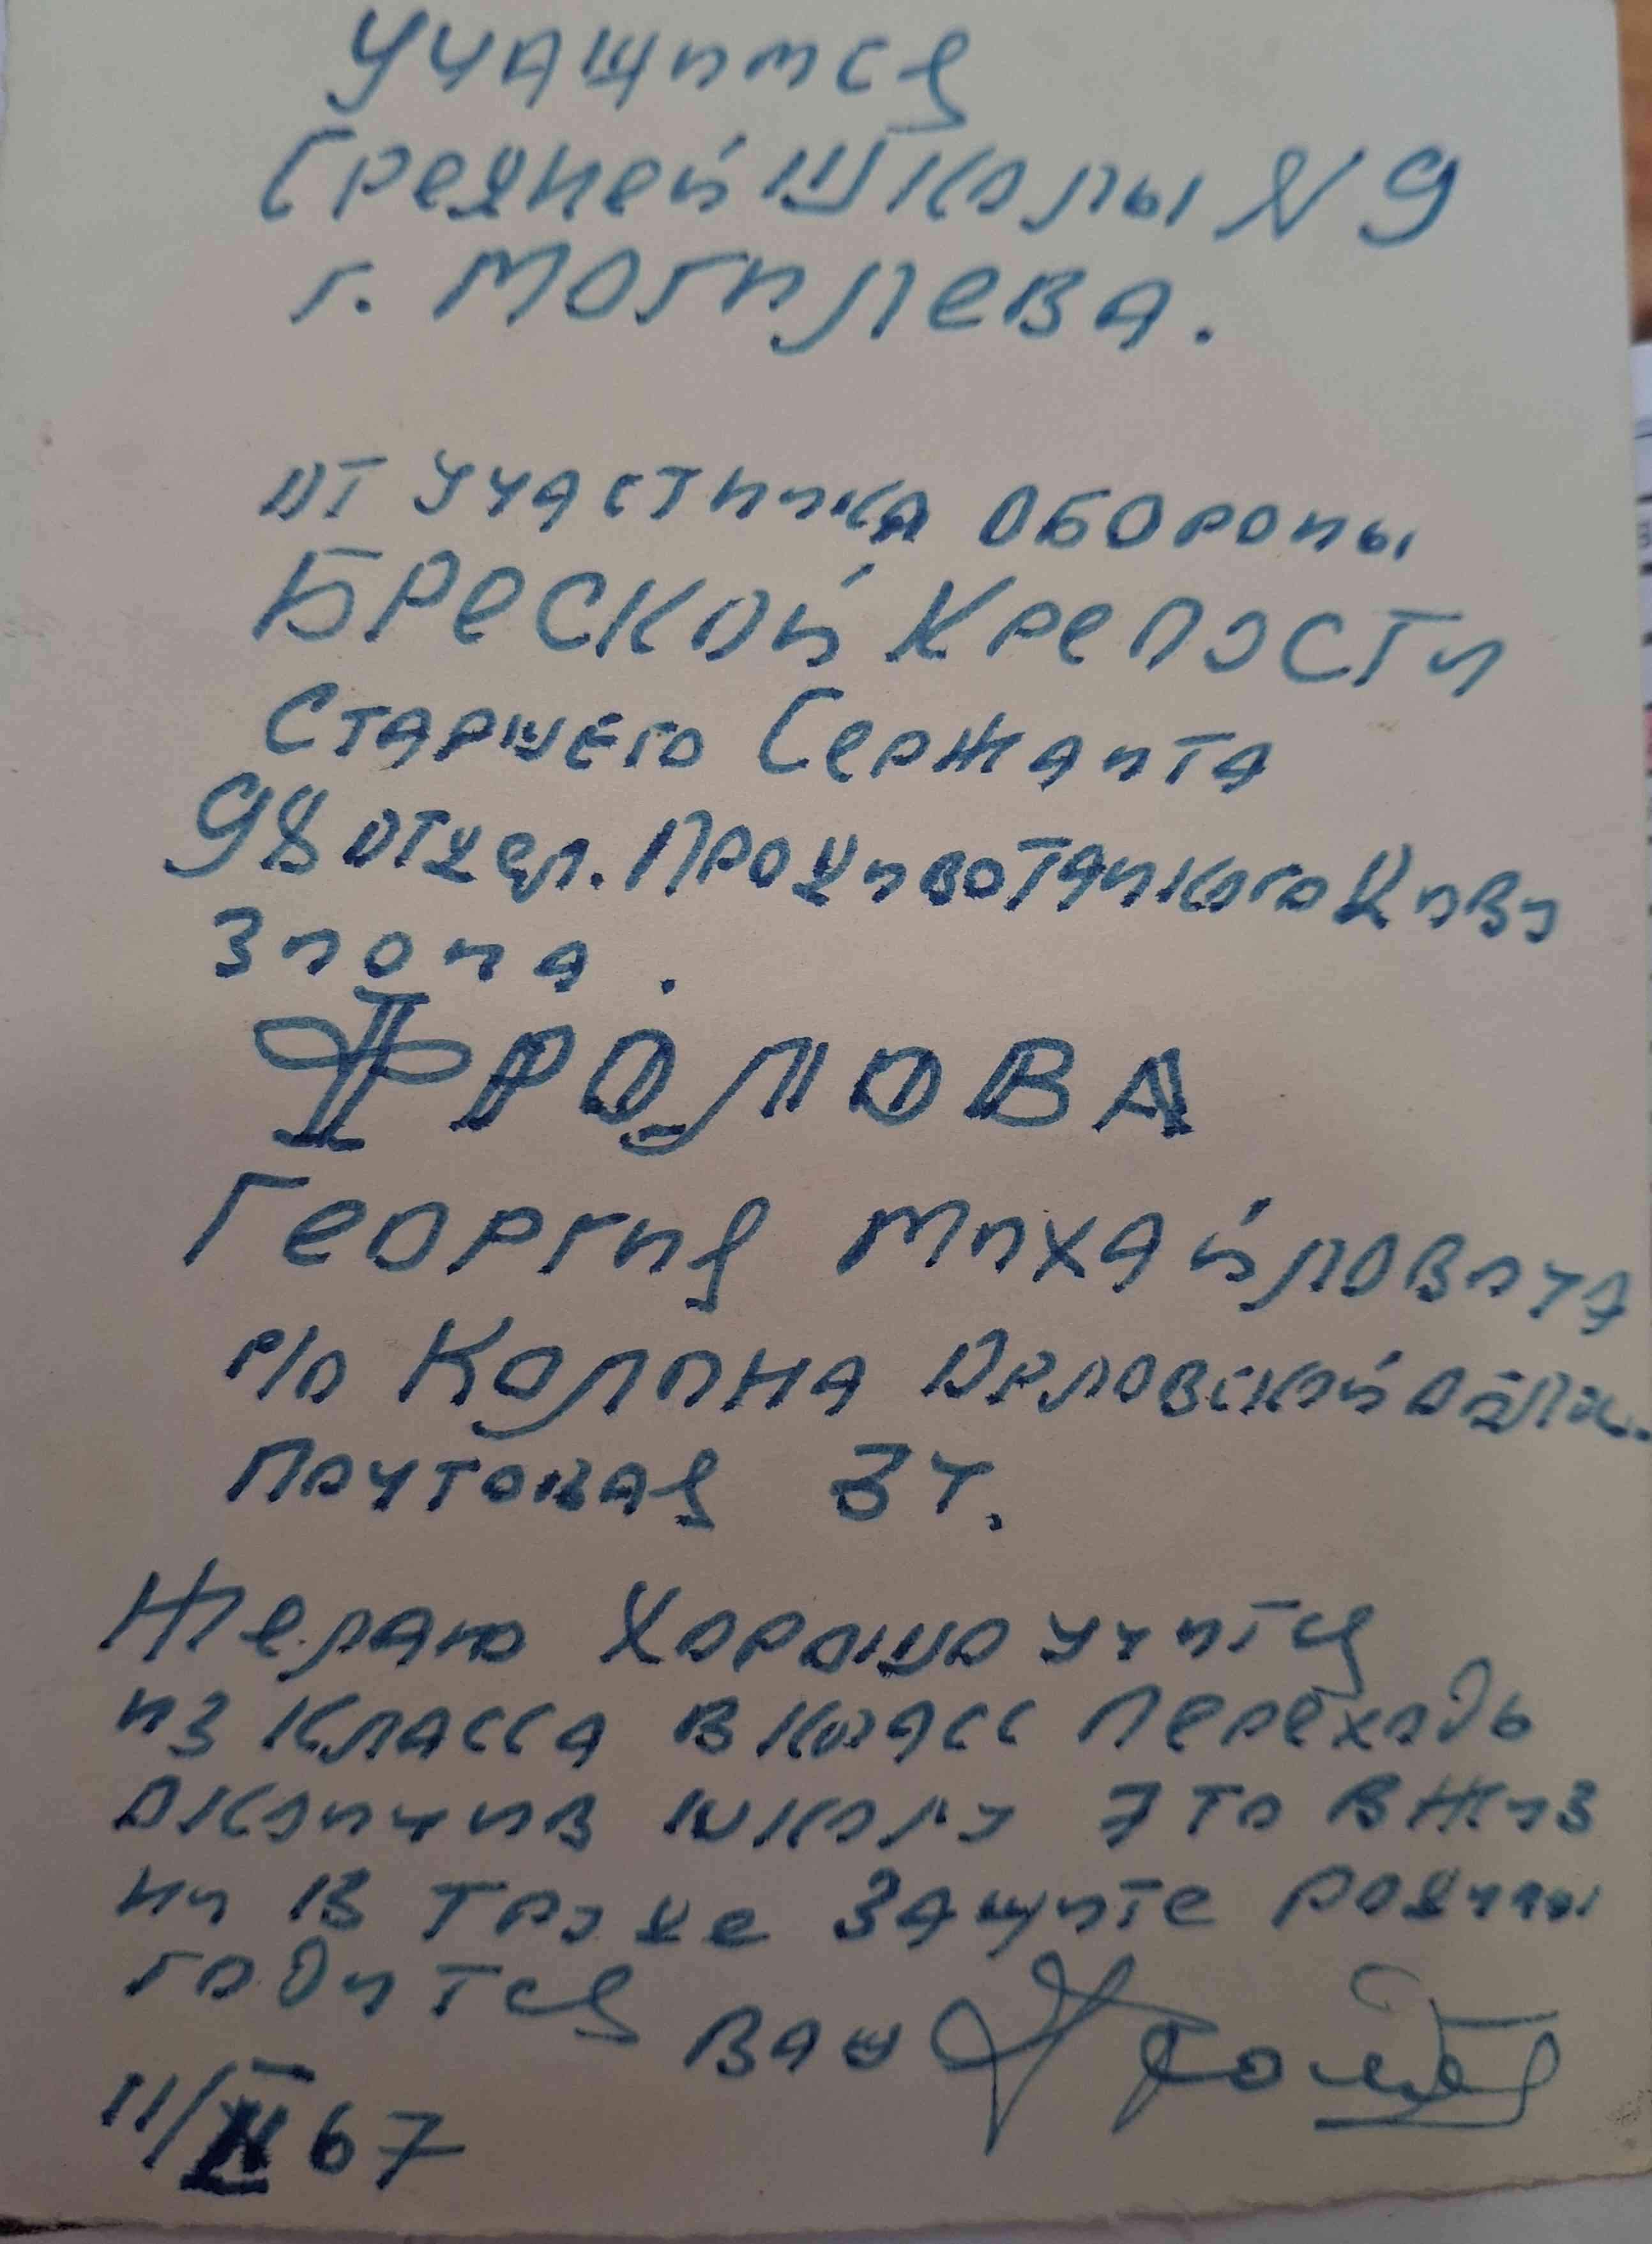 Учащимся
Средней Школы N 9
г. Могилева.
от участника обороны
Бреской Крепости
Старшего Сержанта
98 отдел. Продивотанкого Диви
зиона.
ФРОЛОВА
Георгия Михайловича
р/п Колпна Орловской обл.
Почтовая 34.
Желаю Хорошо учится
из класса в класс переходь
окончив школу это в жиз
ни в труде защите родины
годится
ваш
11/II 67